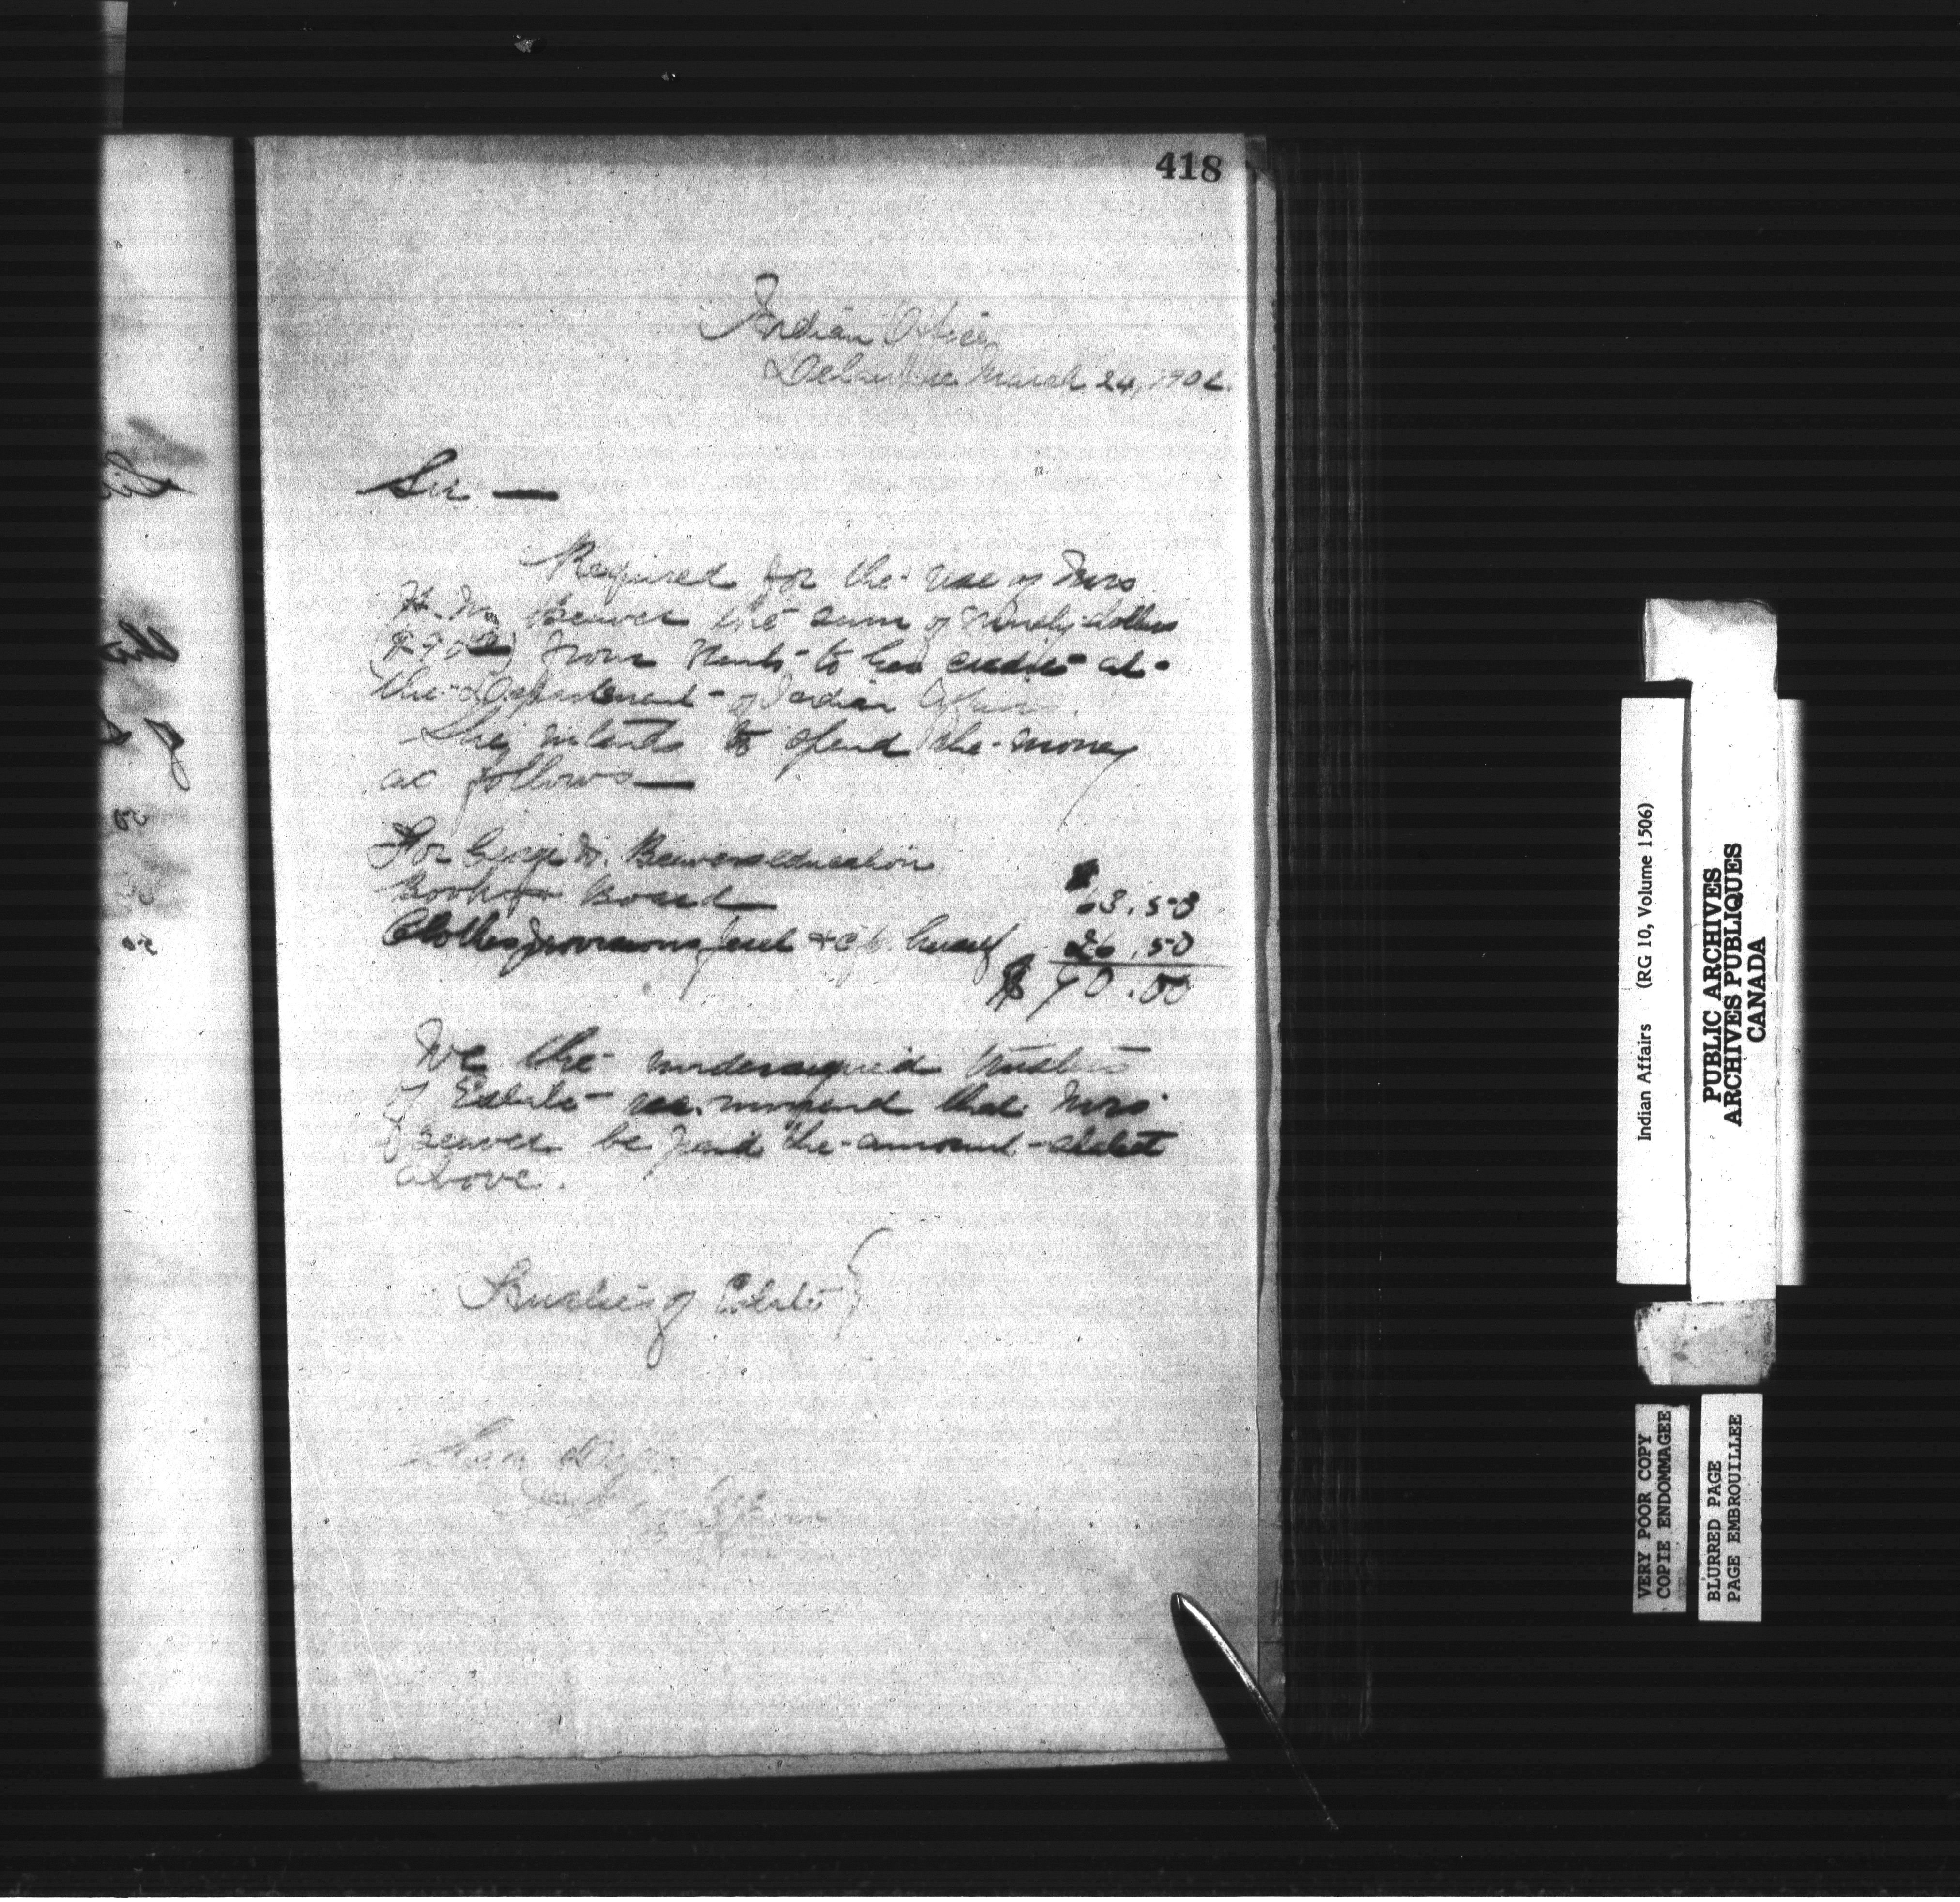 418
Indian Office
Delaware March 24, 190
Sir —
Required for the use of Mrs
Beaver the sum of ninety dollars
($90 00/) from Rents to her credit at
the Department of Indian Affairs.
She intends to spend the money
as follows —
For George W. Beavers education
Books & Board $63.50
Clothes provisions fuel &c for herself 26.50
$ 90.00
We the undersigned Trustees
of Estate recommend that Mrs
Beaver be paid the amount stated
above.
Trustees of Estate }
Indian Affairs (RG 10, Volume 1506)
PUBLIC ARCHIVES
ARCHIVES PUBLIQUES
CANADA
VERY POOR COPY
COPIE ENDOMMAGEE
BLURRED PAGE
PAGE EMBROUILLEE